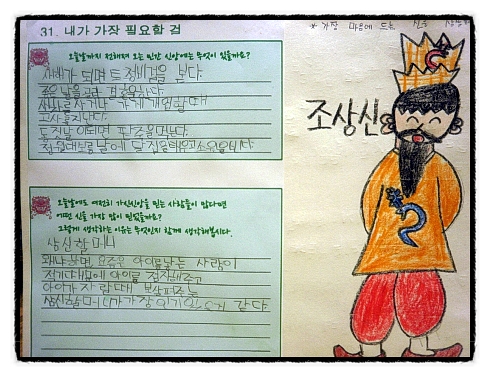 31. 내가 가장 필요할 걸
* 가장 마음에 드는 신을
오늘날까지 전해져 오는 민간 신앙에는 무엇이 있을까요?
새해가 되면 토정비결을 본다.
좋은 날을 골라 결혼한다.
새차를 사거나 가게 개업할 때
고사를 지낸다.
동짓날이 되면 팥죽을 먹는다.
정월대보름날에 달집을 태우고 소원을 빈다.
조상신
오늘날에도 여전히 가신신앙을 믿는 사람들이 많다면
어떤 신을 가장 많이 믿었을까요?
그렇게 생각하는 이유는 무엇인지 함께 생각해봅시다.
삼신할머니
왜냐하면, 요즘은 아이를 낳는 사람이
적기 때문에 아이를 점지해주고
아이가 자랄 때 보살펴주는
삼신할머니가 가장 인기있을거 같다.